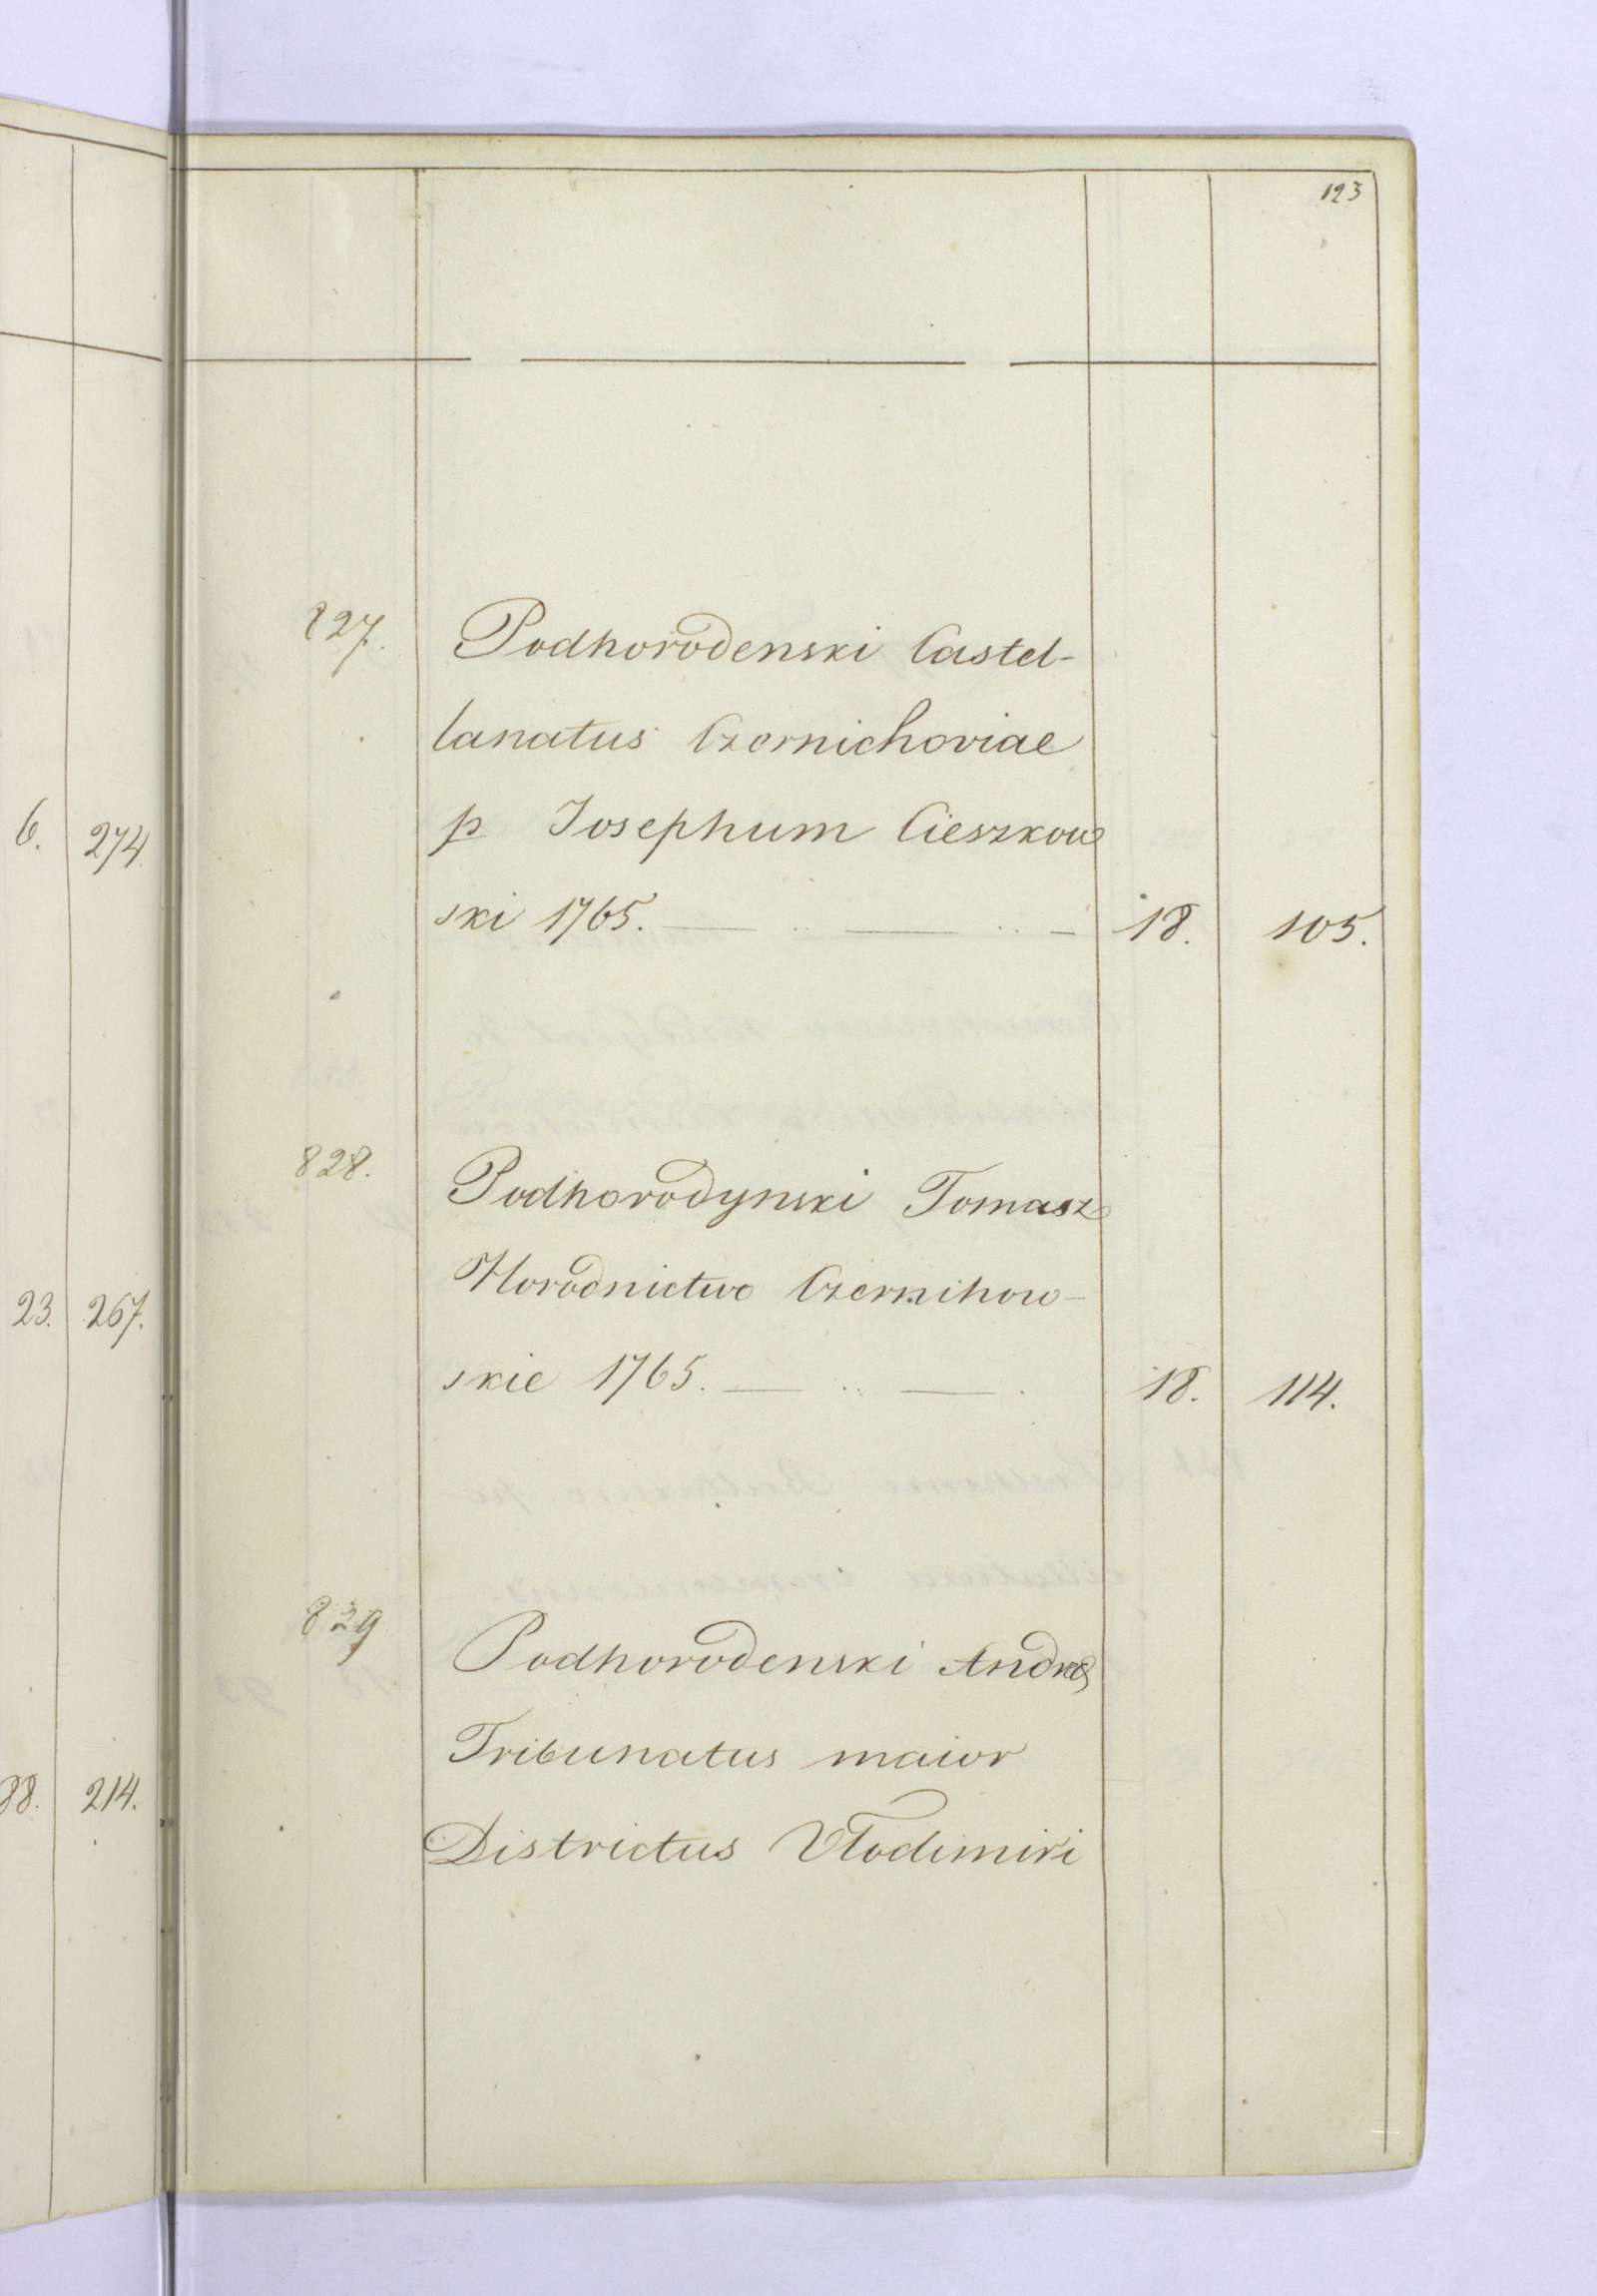 123
827. Podhorodenski Castel-
lanatus Czernichoviae
p Josephum Cieszkow
ski 1765. 18. 105.
828. Podhorodynski Tomasz
Horodnictwo Czernihow-
skie 1765. 18. 114.
829 Podhorodenski
Tribunatus maior
Districtus Vlodimiri
6. 274.
23. 267.
88. 214.